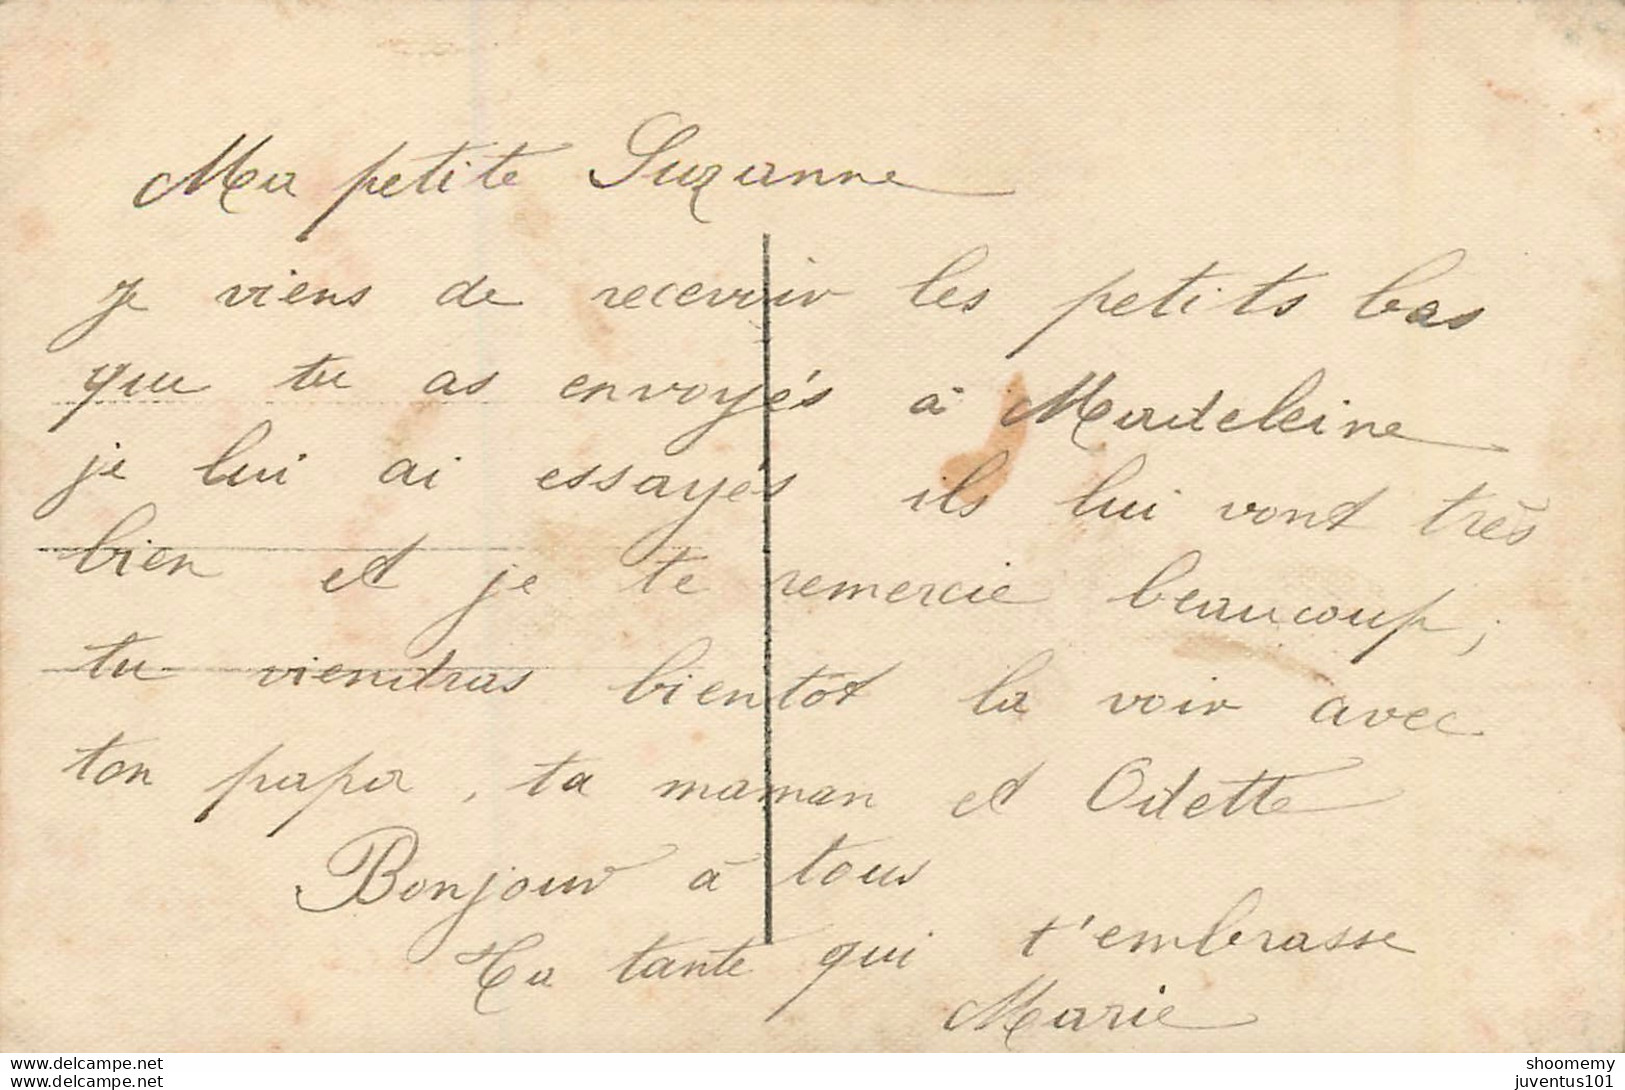 Ma petite Suzanne
je viens de recevoir les petits bas
que tu as envoyés à Madeleine
je lui ai essayés ils lui vont très
bien et je te remercie beaucoup ;
tu viendras bientôt la voir avec
ton papa , ta maman et Odette
Bonjour à tous
Ta tante qui t'embrasse
Marie
https://www.delcampe.net
https://www.delcampe.net
shoomemy
juventus101